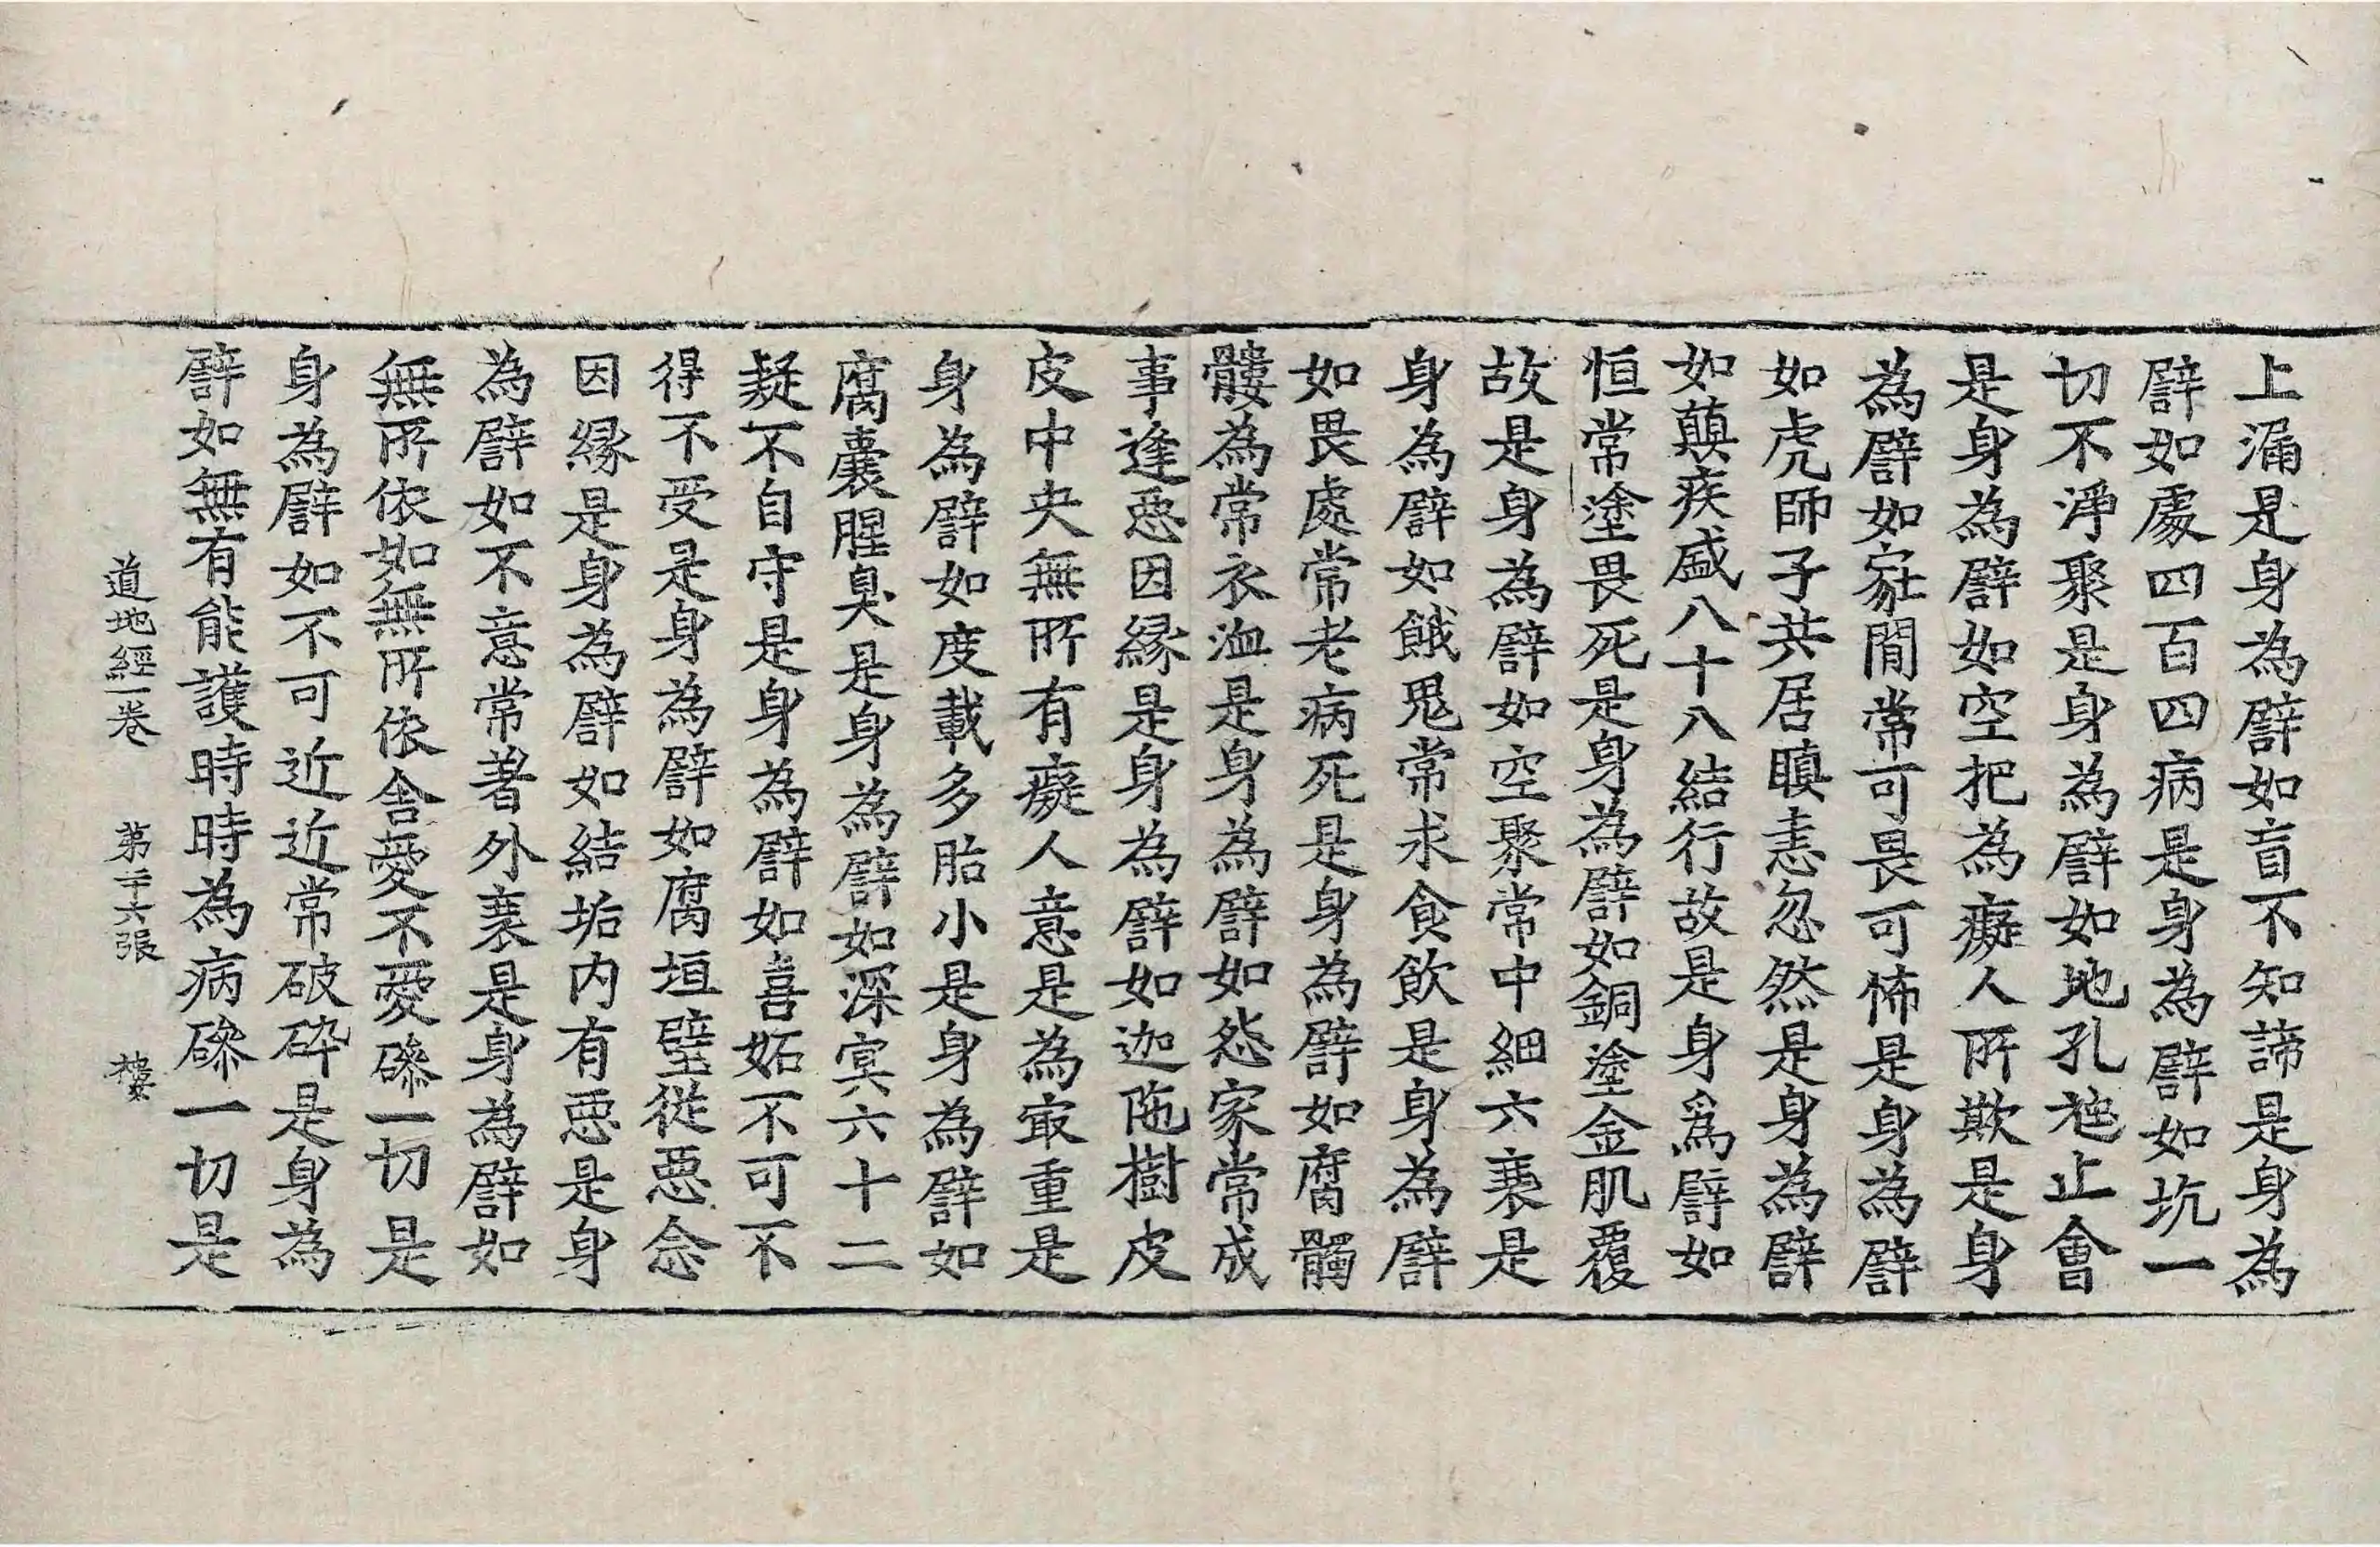 上漏是身為譬如盲不知諦是身為
譬如處四百四病是身為譬如坑一
切不淨聚是身為譬如地孔虵止會
是身為譬如空把為癡人所欺是身
為譬如冢間常可畏可怖是身為譬
如虎師子共居瞋恚忽然是身為譬
如顛疾盛八十八結行故是身爲譬如
恒常塗畏死是身為譬如銅塗金肌覆
故是身為譬如空聚常中細六衰是
身為譬如餓鬼常求食飲是身為譬
如畏處常老病死是身為譬如腐髑
髏為常衣洫是身為譬如怨家常成
事逢惡因緣是身為譬如迦陁樹皮
皮中央無所有癡人意是為㝡重是
身為譬如度載多胎小是身為譬如
腐囊腥臭是身為譬如深冥六十二
疑不自守是身為譬如喜妬不可不
得不受是身為譬如腐垣壁從惡念
因緣是身為譬如結垢內有惡是身
為譬如不意常著外衰是身為譬如
無所依如無所依舍愛不愛磣一切是
身為譬如不可近近常破碎是身為
譬如無有能護時時為病磣一切是
道地經一卷 第二十六張 樓